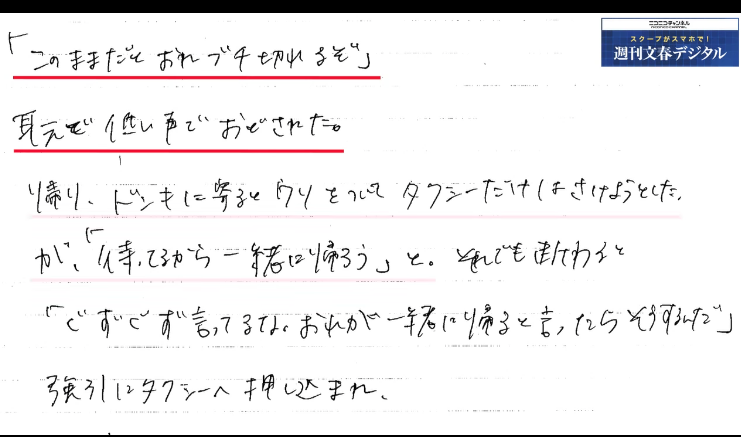 ニコニコチャンネル
スクープがスマホで!
週刊文春デジタル
「このままだとおれブチ切れるぞ」
耳元で低い声でおどされた。
帰り、ドンキに寄るとウソをついてタクシーだけはさけようとした。
が、「待ってるから一緒に帰ろう」と。それでも断わると
「ぐずぐず言ってるな。おれが一緒に帰ると言ったらそうするんだ」
強引にタクシーへ押し込まれ、